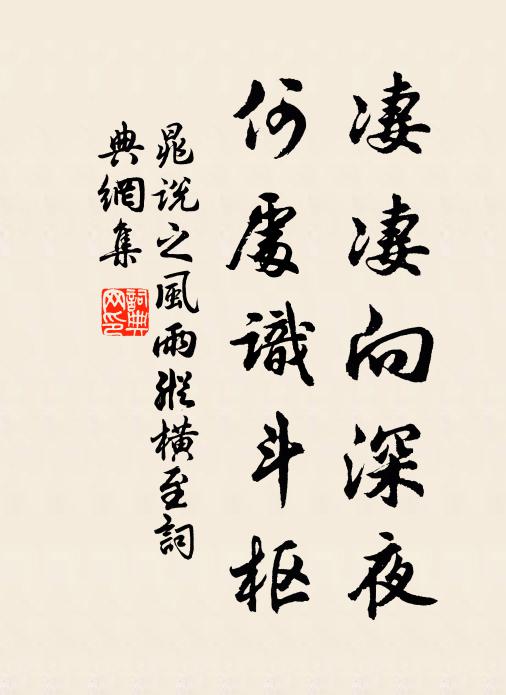 凄凄向深夜
何處識斗枢
晁说之風雨縱橫至詞
典網集
詞典
网印